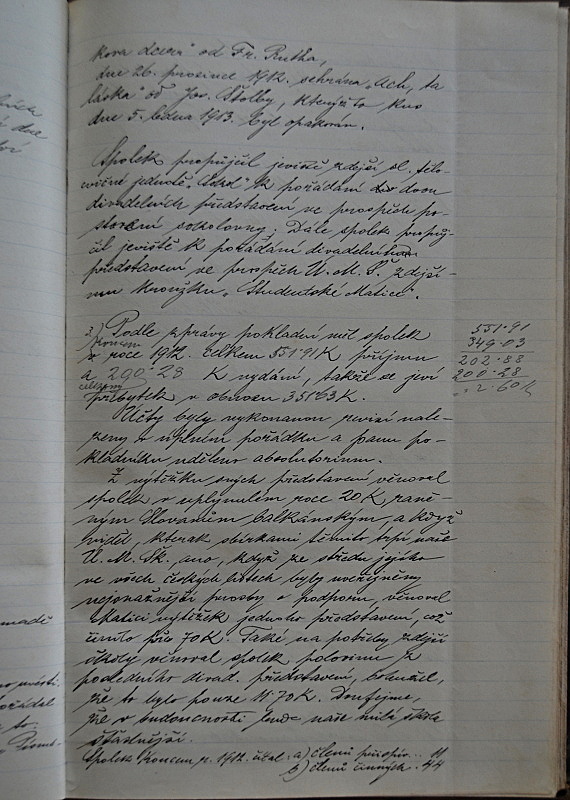 kova dcera" od Fr. Rutha,
dne 26. prosince 1912. sehrána "Ach, ta
láska" od Jos. Štolby, kterýžto kus
dne 5. ledna 1913. byl opakován.
Spolek propůjčil jeviště zdejší sl. tělo-
cvičné jednotě "Sokol" k pořádání dvou
divadelních představení ve prospěch po-
stavení sokolovny; Dále spolek propůj-
čil jeviště k pořádání divadelního
představení ve prospěch Ú. M. Š. zdejší-
mu kroužku "Studentské Matice".
3.) Podle zprávy pokladní měl spolek
koncem
v roce 1912. celkem 551·91 K příjmu
a 290·28 K vydání, takže se jeví
celkový
přebytek v obnosu 351·63 K.
Účty byly vykonanou revisí nale-
zeny v úplném pořádku a panu po-
kladníku uděleno absolutorium.
Z výtěžku svých představení věnoval
spolek v uplynulém roce 20 K raně-
ným Slovanům balkánským, a když
viděl, kterak sbírkami těmito trpí naše
Ú. M. Šk. ano, když ze středu jejího
ve všech českých listech byly uveřejněny
nejsnažnější prosby o podporu, věnoval
Matici výtěžek jednoho představení, což
činilo přes 70 K. Také na potřeby zdejší
školy věnoval spolek polovinu z
posledního divad. představení, bohužel,
že to bylo pouze 11·70 K. Doufejme,
že v budoucnosti bude naše milá škola
šťastnější.
Spolek koncem r. 1912. čítal: a) členů přispív. .. 11
b) členů činných .. 44
551·91
349·03
202·88
200·28
2·60 K